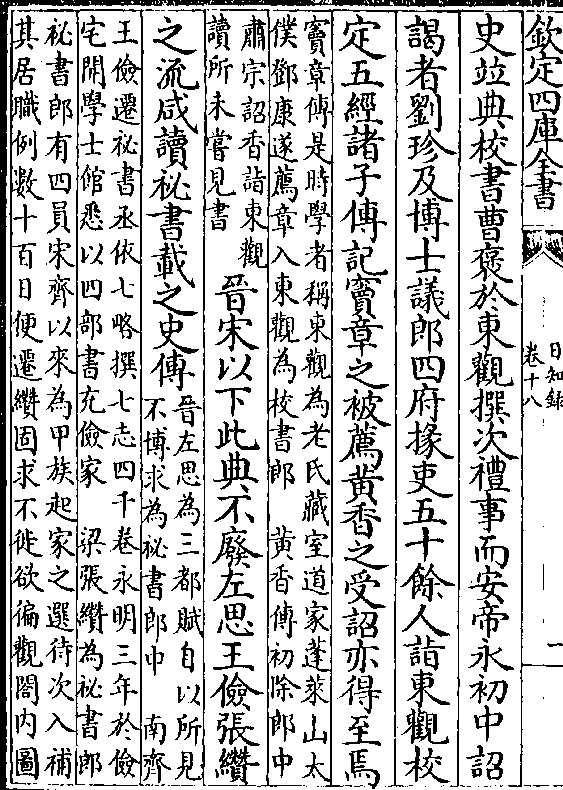 欽定四庫全書
日知録
卷十八
一
史竝典校書曹襃於東觀撰次禮事而安帝永初中詔
謁者劉珍及博士議郎四府掾吏五十餘人詣東觀校
定五經諸子傳記竇章之被薦黃香之受詔亦得至焉
竇章傳是時學者稱東觀為老氏藏室道家蓬萊山太
僕鄧康遂薦章入東觀為校書郎　黃香傳初除郎中
肅宗詔香詣東觀
讀所未嘗見書
晉宋以下此典不廢左思王儉張纘
之流咸讀祕書載之史傳
晉左思為三都賦自以所見
不博求為祕書郎中　南齊
王儉遷祕書丞依七略撰七志四千卷永明三年於儉
宅開學士館悉以四部書充儉家　梁張纘為祕書郎
祕書郎有四員宋齊以來為甲族起家之選待次入補
其居職例數十百日便遷纘固求不徙欲徧觀閣内圖